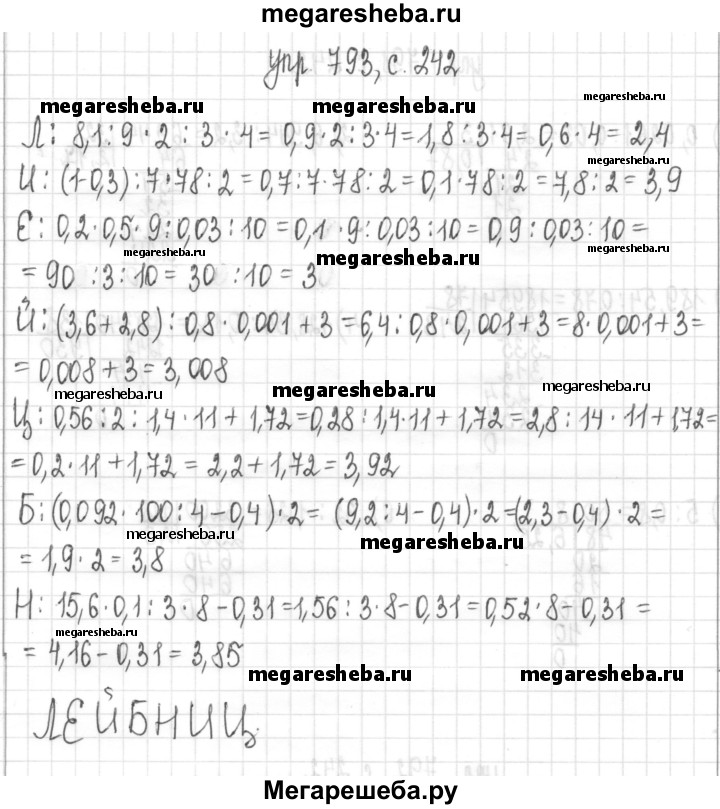 megaresheba.ru
упр. 793, с. 242
megaresheba.ru megaresheba.ru megaresheba.ru
Л: 8,1 : 9 · 2 : 3 · 4 = 0,9 · 2 : 3 · 4 = 1,8 : 3 · 4 = 0,6 · 4 = 2,4
megaresheba.ru
И: (1-0,3) : 7 · 78 : 2 = 0,7 : 7 · 78 : 2 = 0,1 · 78 : 2 = 7,8 : 2 = 3,9
Е: 0,2 · 0,5 · 9 : 0,03 : 10 = 0,1 · 9 : 0,03 : 10 = 0,9 : 0,03 : 10 =
megaresheba.ru megaresheba.ru megaresheba.ru
= 90 : 3 : 10 = 30 : 10 = 3
Й: (3,6 + 2,8) : 0,8 · 0,001 + 3 = 6,4 : 0,8 · 0,001 + 3 = 8 · 0,001 + 3 =
= 0,008 + 3 = 3,008
megaresheba.ru megaresheba.ru megaresheba.ru
Ц: 0,56 : 2 : 1,4 · 11 + 1,72 = 0,28 : 1,4 · 11 + 1,72 = 2,8 : 14 · 11 + 1,72 =
= 0,2 · 11 + 1,72 = 2,2 + 1,72 = 3,92
Б: (0,092 · 100 : 4 - 0,4) · 2 = (9,2 : 4 - 0,4) · 2 = (2,3 - 0,4) · 2 =
megaresheba.ru megaresheba.ru
= 1,9 · 2 = 3,8
Н: 15,6 · 0,1 : 3 · 8 - 0,31 = 1,56 : 3 · 8 - 0,31 = 0,52 · 8 - 0,31 =
megaresheba.ru
= 4,16 - 0,31 = 3,85
megaresheba.ru megaresheba.ru
ЛЕЙБНИЦ
Мегарешеба.ру